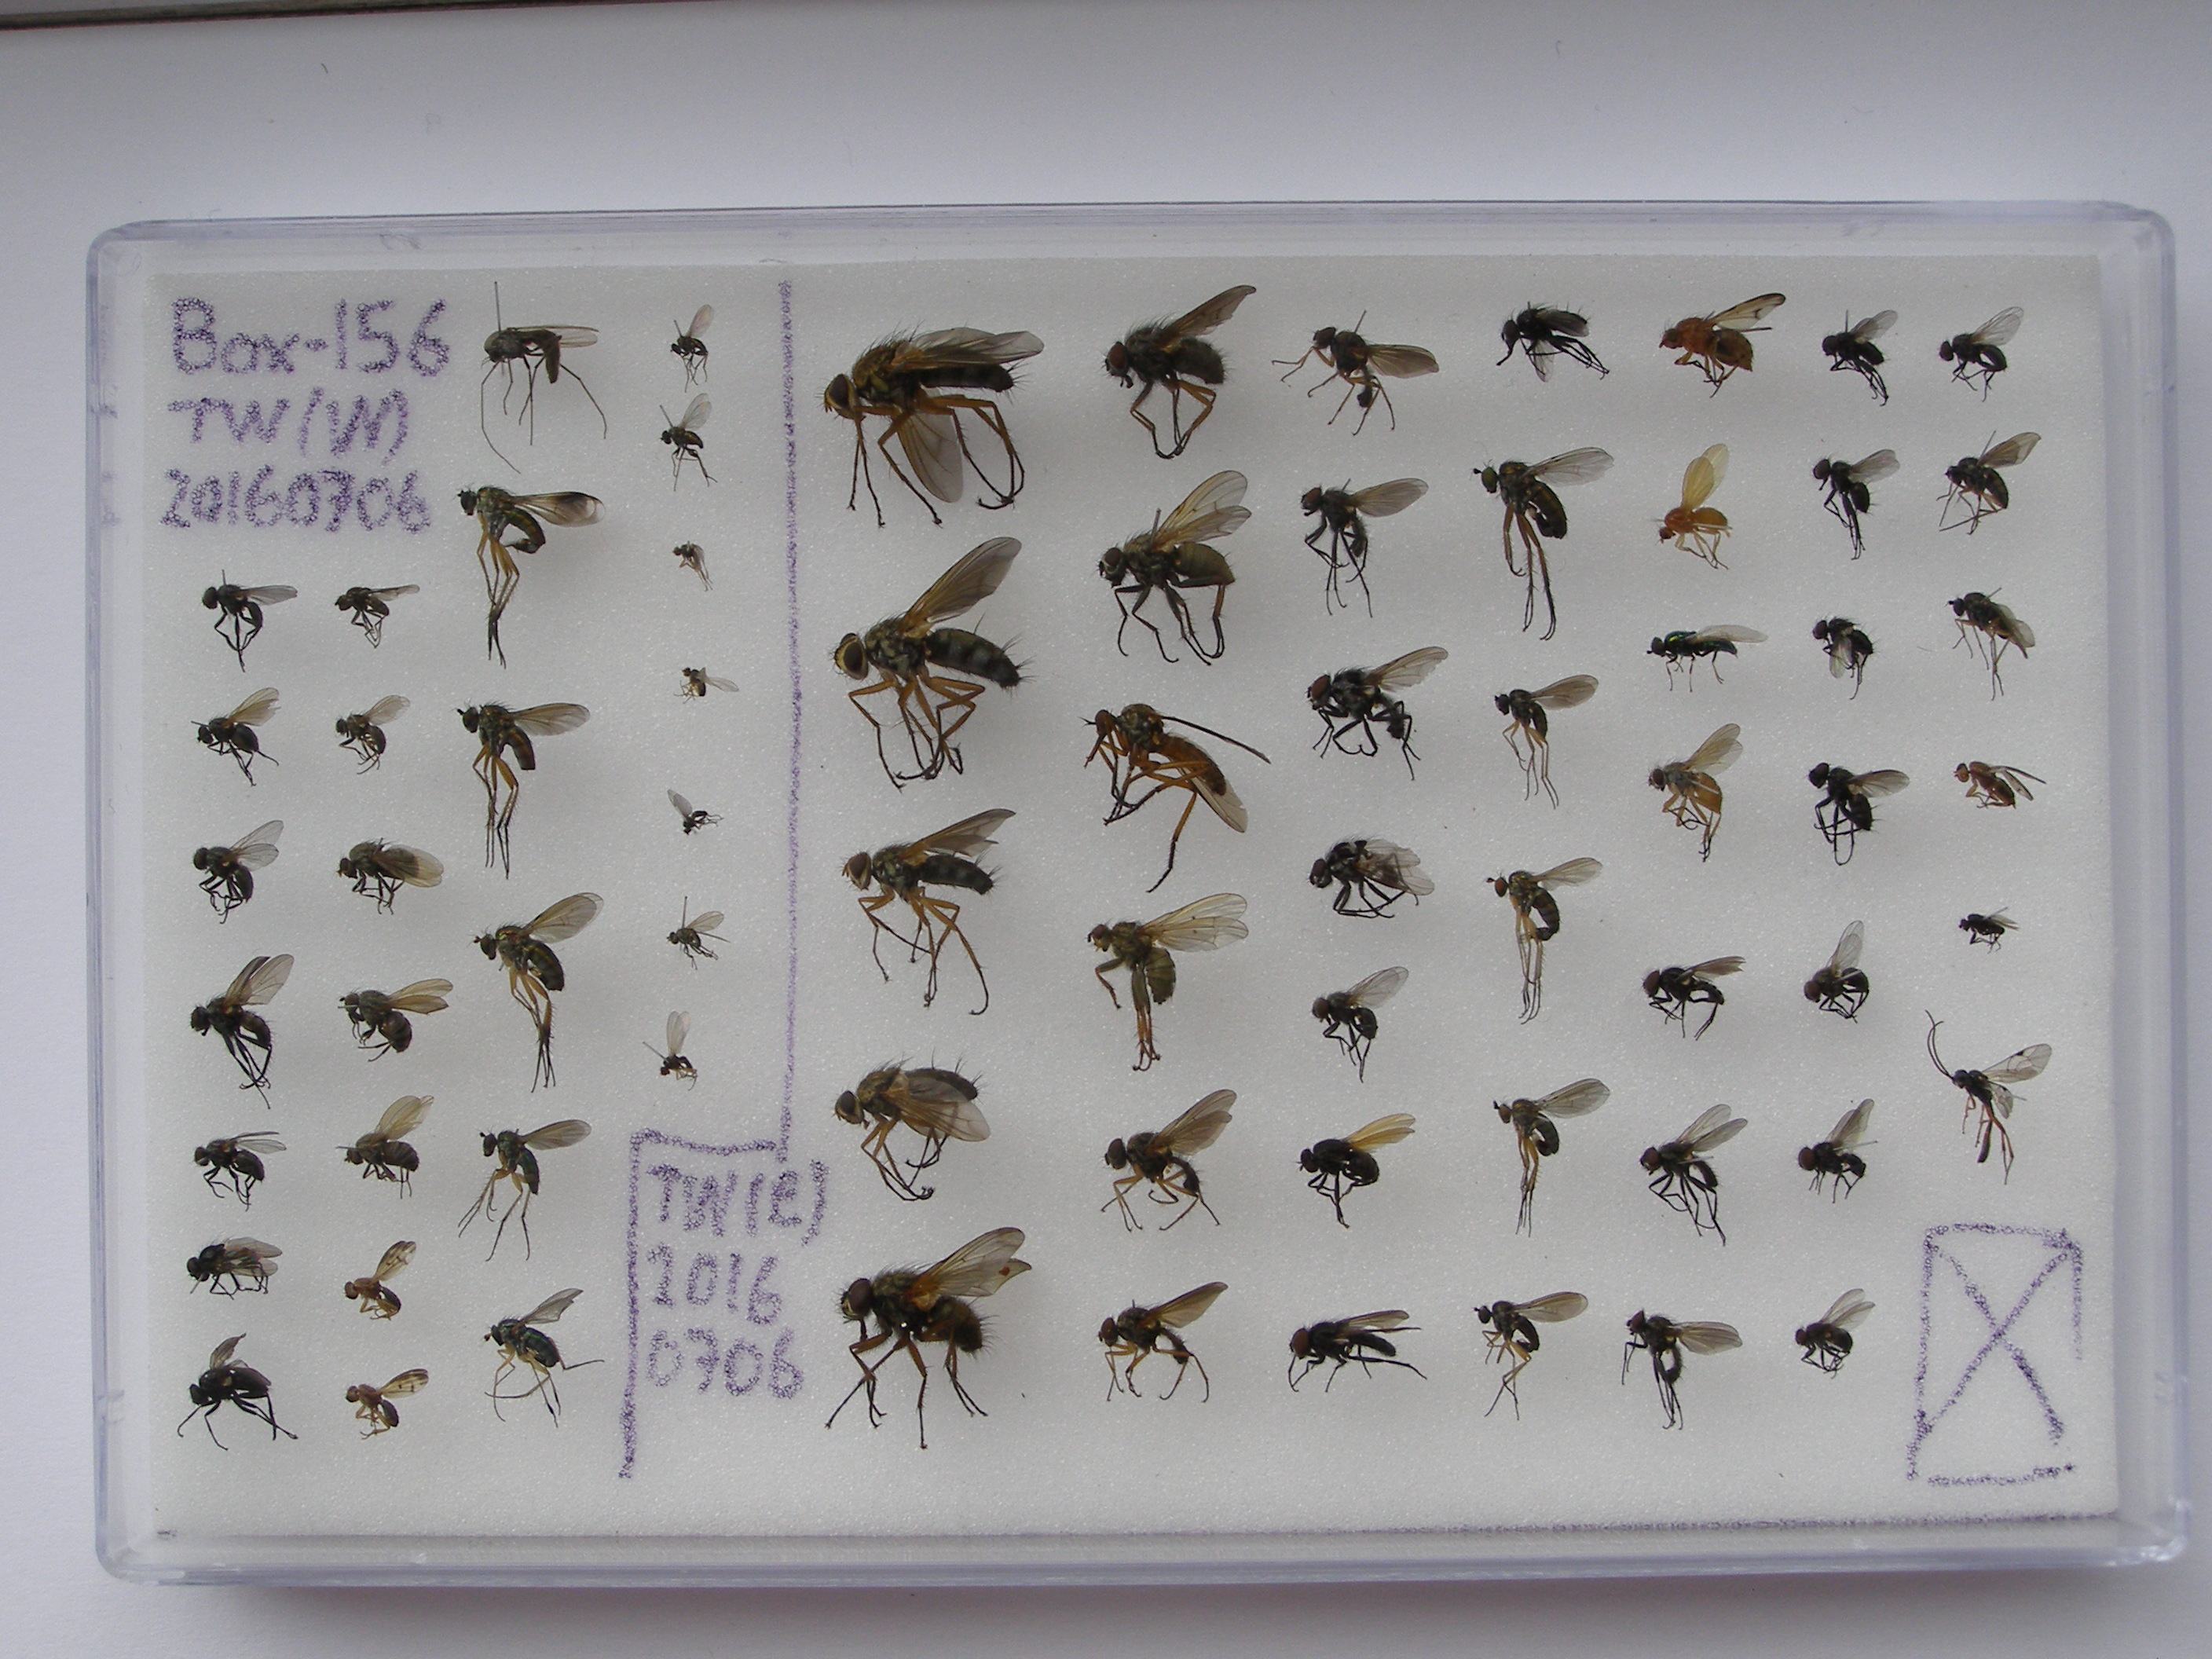 Box-156
TW(M)
20160706
TW(E)
2016
0706